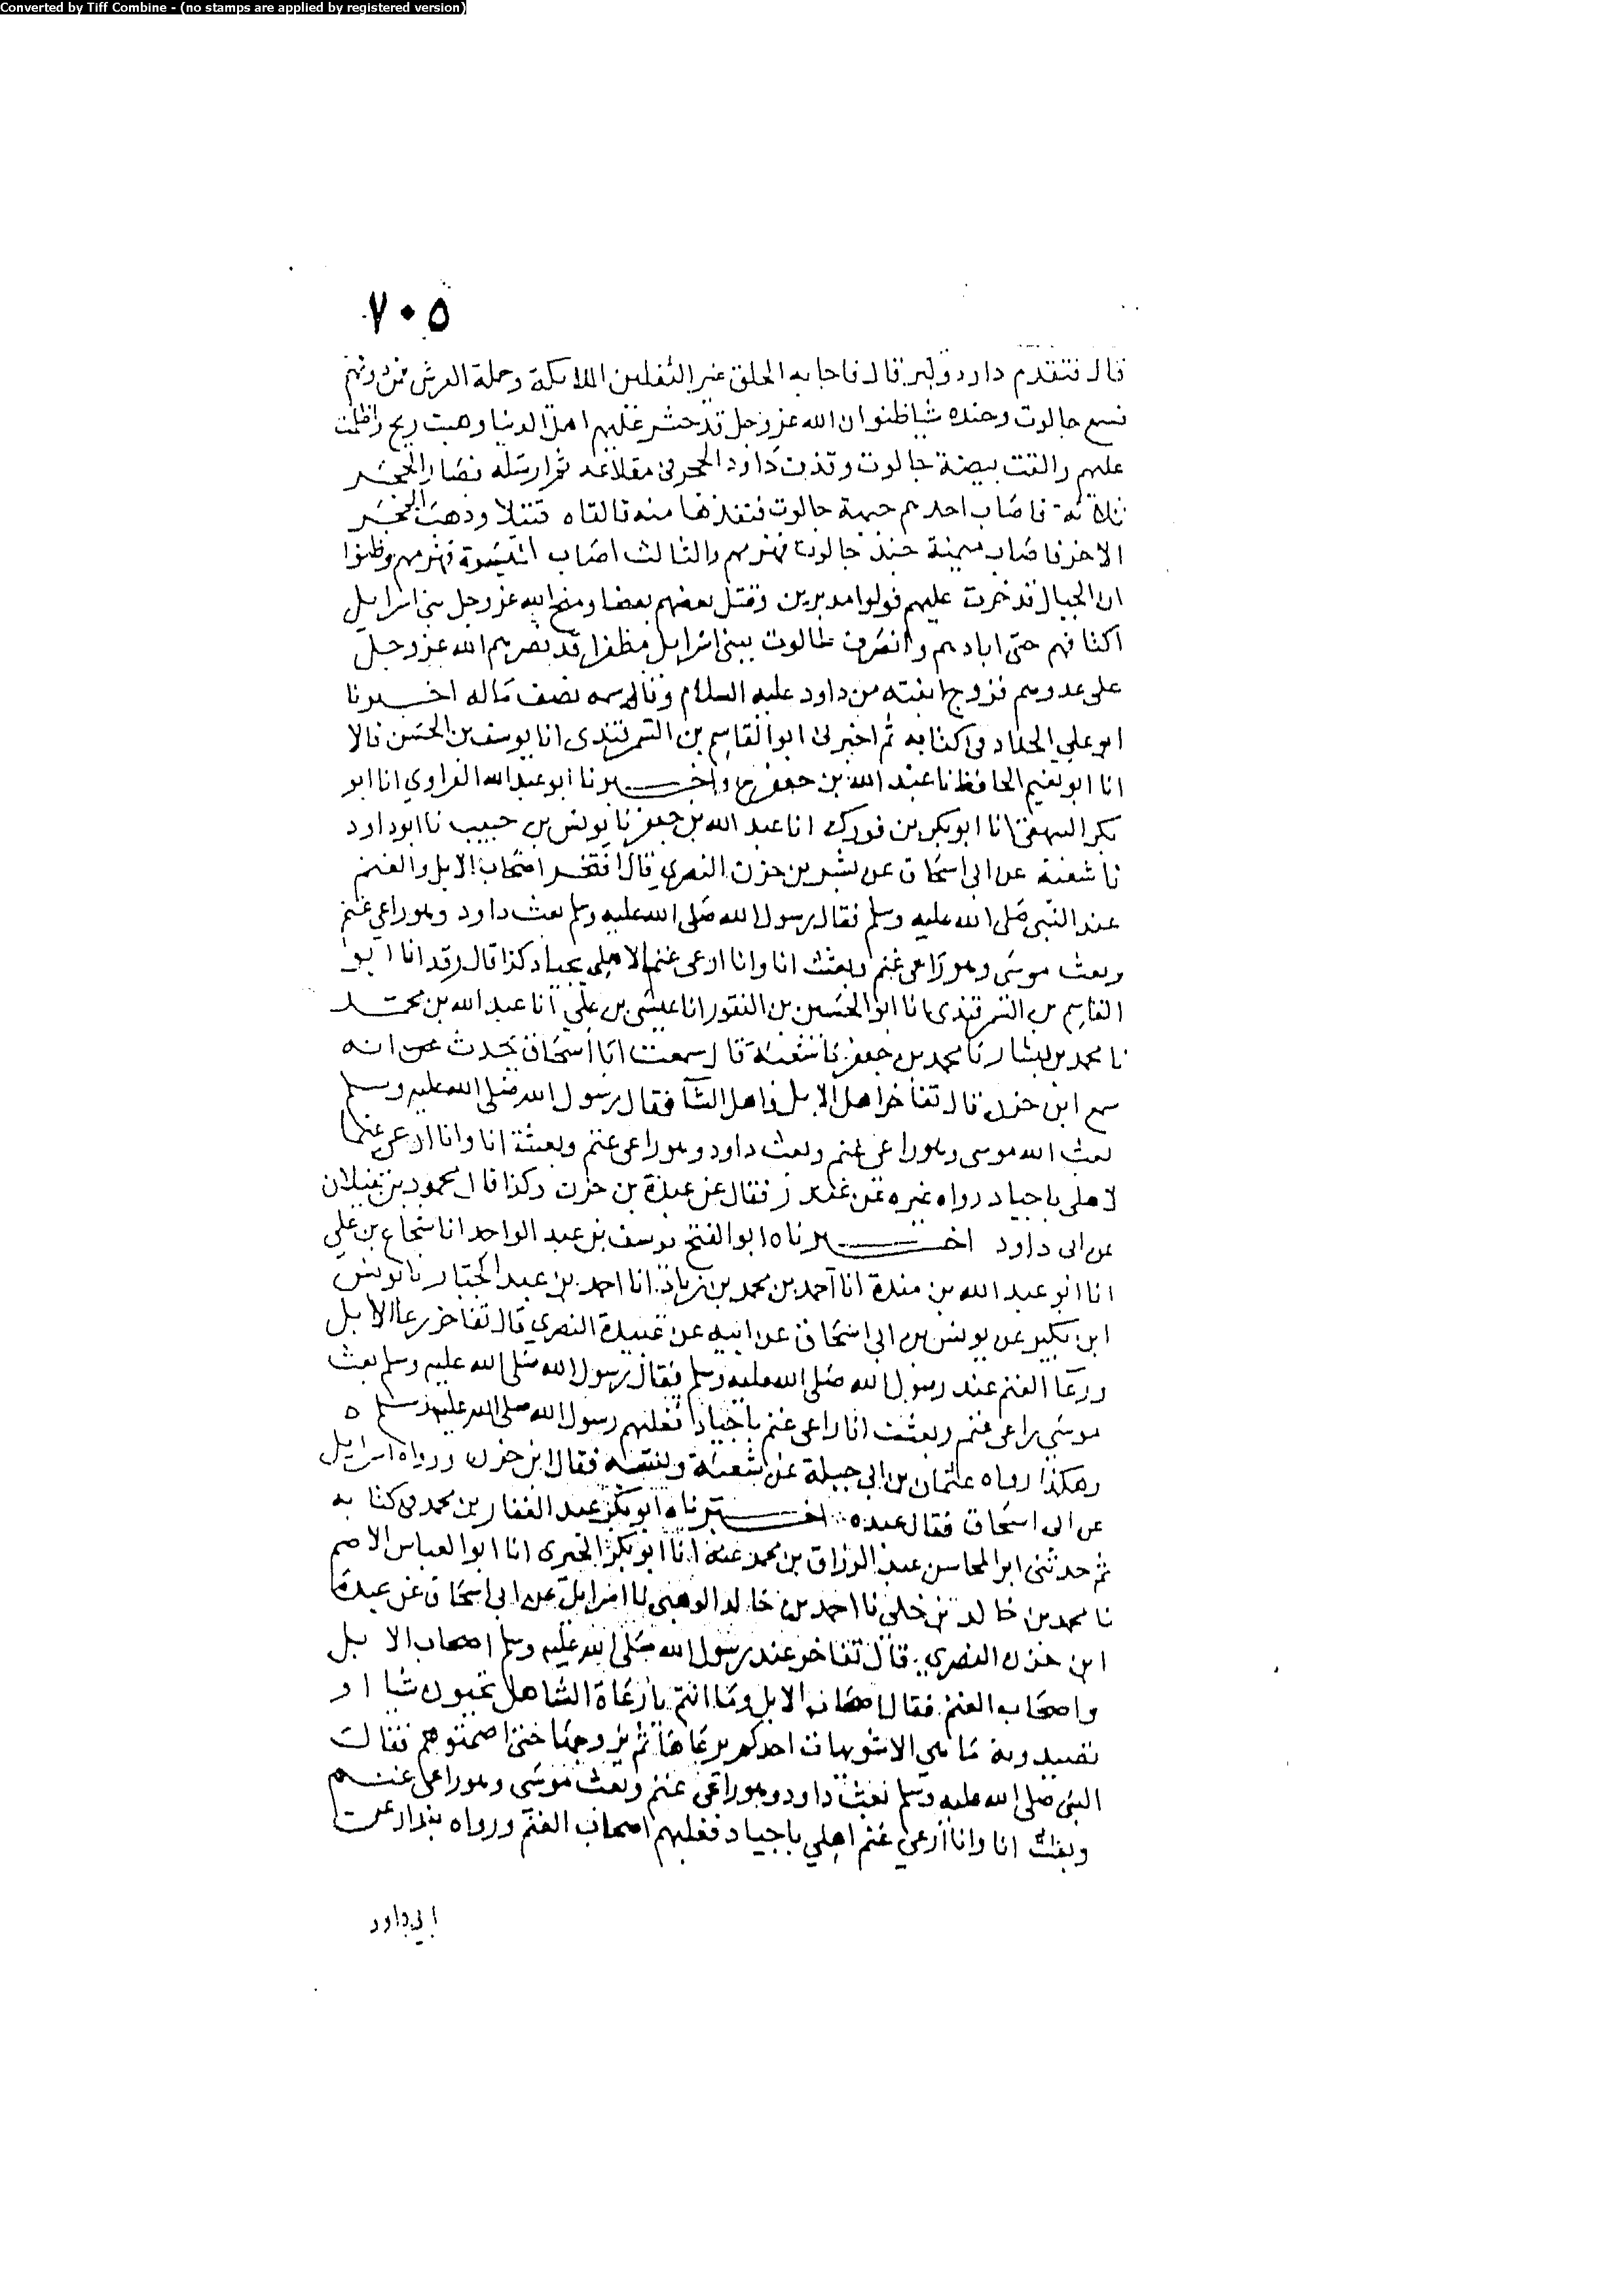 Converted by Tiff Combine - (no stamps are applied by registered version)
٧٠٥
قال فتقدم داود وكبر قال فاجابه الخلق غير الثقلين الملايكة وحملة العرش فمن دونهم
فسمع جالوت وجنده شيا ظنوا ان الله عز وجل قد حشر عليهم اهل الدنيا وهبت ريح واظلمت
عليهم والقت بيضة جالوت وقذف داود الحجر في مقلاعه ثم ارسله فصار الحجر
ثلاثة فاصاب احدهم جبهة جالوت فنفذها منه فالقاه قتيلا وذهب الحجر
الاخر فاصاب ميمنة جند جالوت فهزمهم والثالث اصاب الميسرة فهزمهم وظنوا
ان الجبال قد خرت عليهم فولوا مدبرين وقتل بعضهم بعضا ومنح الله عز وجل بني اسرايل
اكتافهم حتى ابادهم وانصرف طالوت ببني اسرايل مظفرا قد نصرهم الله عز وجل
على عدوهم فزوج ابنته من داود عليه السلام وقاسمه نصف ماله اخبرنا
ابو علي الحداد في كتابه ثم اخبرني ابو القاسم بن السمرقندي انا يوسف بن الحسن قالا
انا ابو نعيم الحافظ نا عبد الله بن جعفر ح واخبرنا ابو عبد الله الفراوي انا ابو
بكر البيهقي انا ابو بكر بن فورك انا عبد الله بن جعفر نا يونس بن حبيب نا ابو داود
نا شعبة عن ابي اسحاق عن بشر بن حزن النصري قال افتخر اصحاب الابل والغنم
عند النبي صلى الله عليه وسلم فقال رسول الله صلى الله عليه وسلم بعث داود وهو راعي غنم
وبعث موسى وهو راعي غنم وبعثت انا وانا ارعى غنما لاهلي بجياد كذا قال وقد انا ابو
القاسم بن السمرقندي انا ابو الحسين بن النقور انا عيسى بن علي انا عبد الله بن محمد
نا محمد بن بشار نا محمد بن جعفر نا شعبة قال سمعت ابا اسحاق يحدث عن انه
سمع ابن حزن قال تفاخر اهل الابل واهل الشآ فقال رسول الله صلى الله عليه وسلم
بعث الله موسى وهو راعي غنم وبعث داود وهو راعي غنم وبعثة انا وانا ارعى غنما
لاهلي باجياد رواه غيره عن غندر فقال عن عبدة بن حزن وكذا قال محمود بن غيلان
عن ابي داود اخبرناه ابو الفتح يوسف بن عبد الواحد انا شجاع بن علي
انا ابو عبد الله بن مندة انا احمد بن محمد بن زياد انا احمد بن عبد الجبار نا يونس
ابن بكير عن يونس بن ابي اسحاق عن ابيه عن عبيدة النصري قال تفاخر رعا الابل
ورعا الغنم عند رسول الله صلى الله عليه وسلم فقال رسول الله صلى الله عليه وسلم بعث
موسى راعي غنم وبعثت انا راعي غنم باجياد فغلبهم رسول الله صلى الله عليه وسلم ٥
وهكذا رواه عثمان بن ابي جبلة عن شعبة فقال ابن حزن ورواه اسرايل
عن ابي اسحاق فقال عبده اخبرناه ابو بكر عبد الغفار بن محمد في كتابه
ثم حدثني ابو المحاسن عبد الرزاق بن محمد عنه انا ابو بكر الحيري انا ابو العباس الاصم
نا محمد بن خالد بن خلي نا احمد بن خالد الوهبي نا اسرايل عن ابي اسحاق عن عبدة
ابن حزن النصري قال تفاخر عند رسول الله صلى الله عليه وسلم اصحاب الابل
واصحاب الغنم فقال اصحاب الابل وما انتم يا رعاة الشا هل تحبون شيا او
تصيدونه ما هي الا شويهات احدكم يرعاها ثم يروحها حتى اصمتوهم فقال
النبي صلى الله عليه وسلم بعث داود وهو راعي غنم وبعث موسى وهو راعي غنم
وبعثت انا وانا ارعى غنم اهلي باجياد فغلبهم اصحاب الغنم ورواه بندار عن
ابي داود